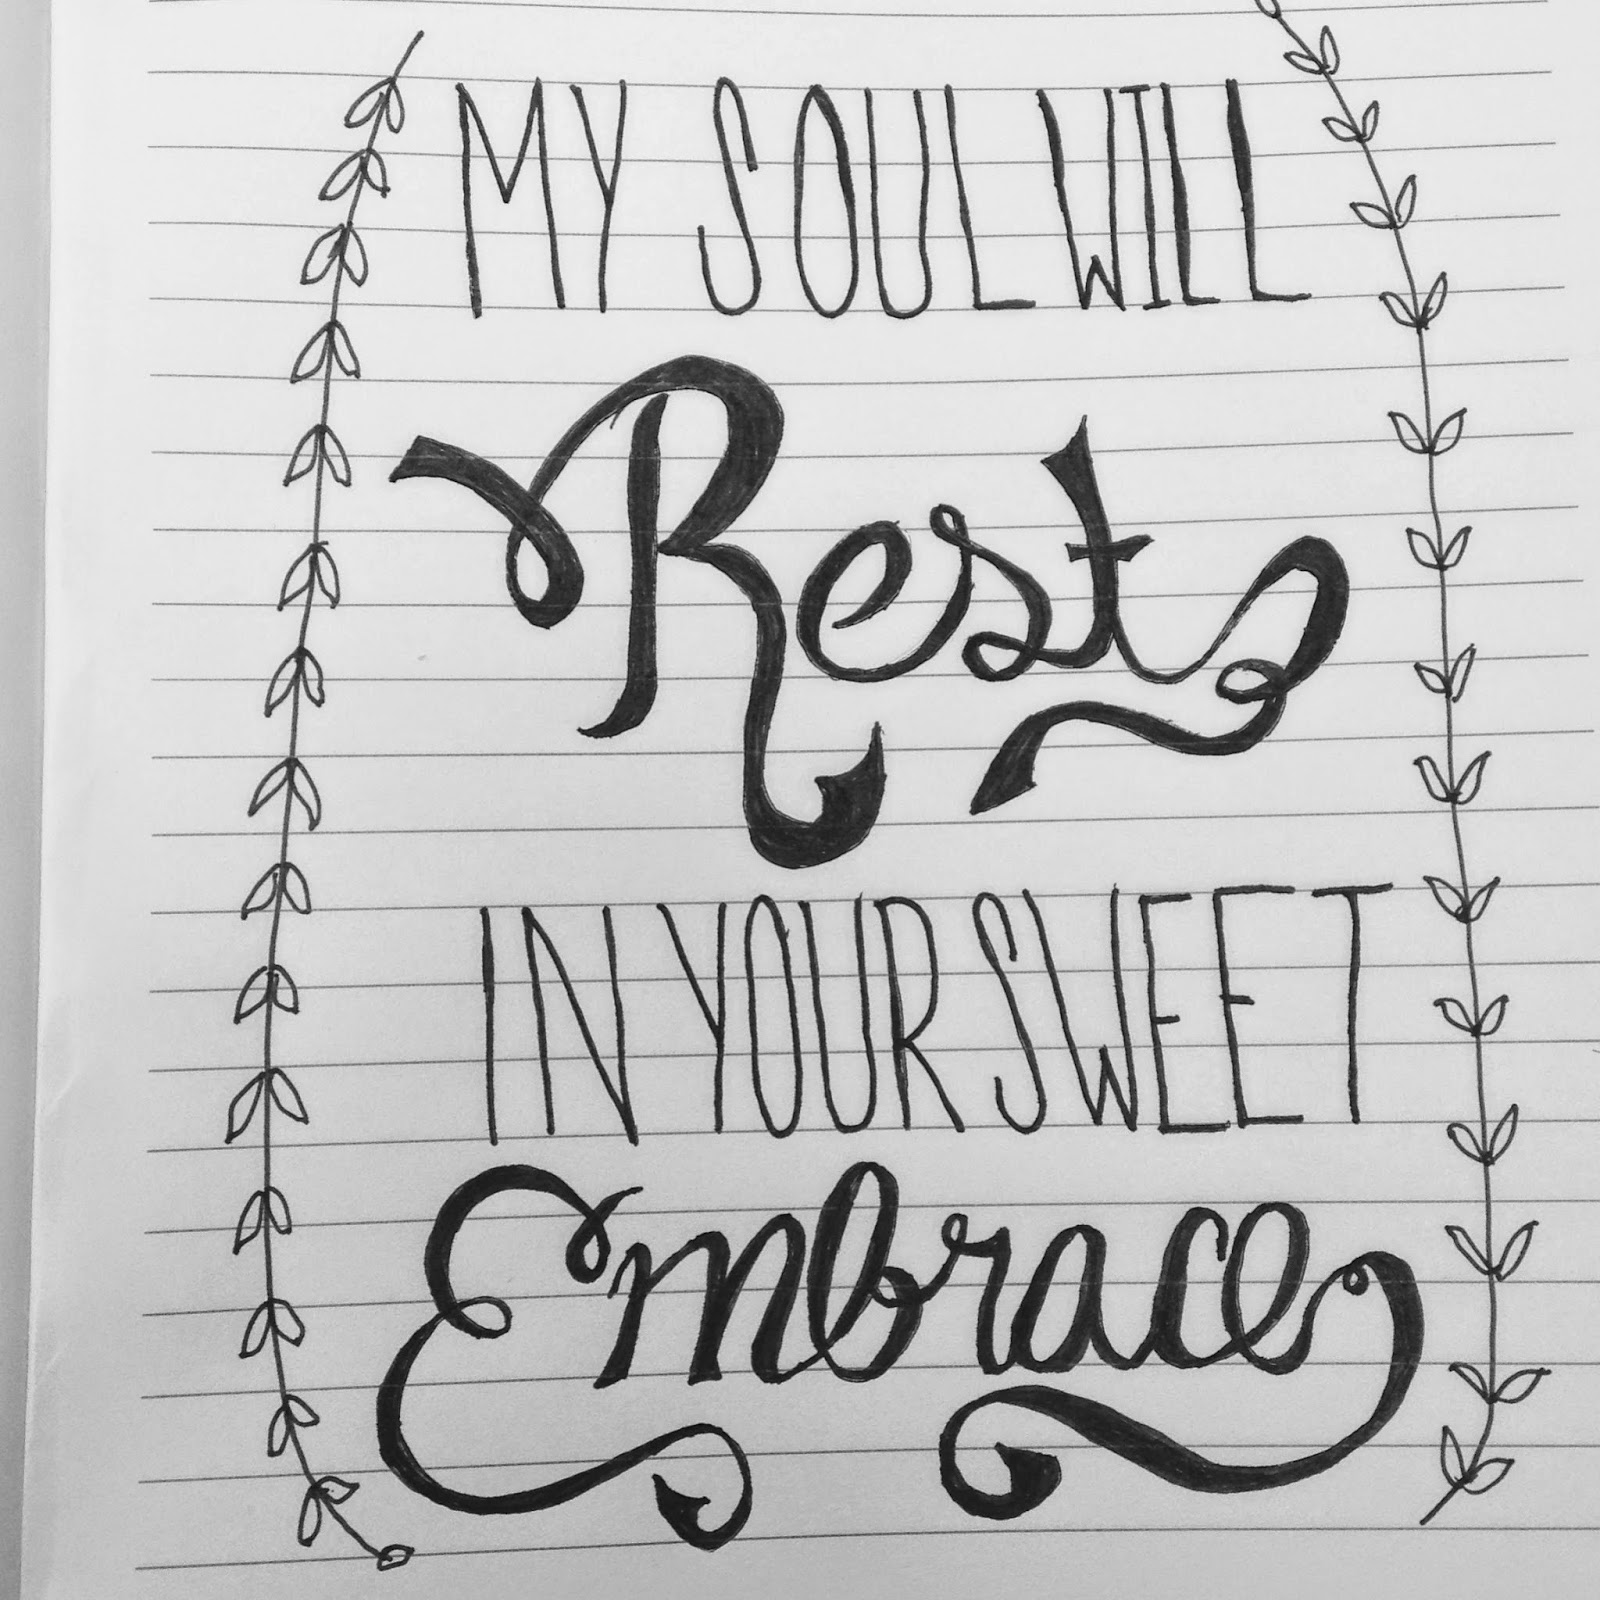 MY SOUL WILL
Rest
IN YOUR SWEET
Embrace